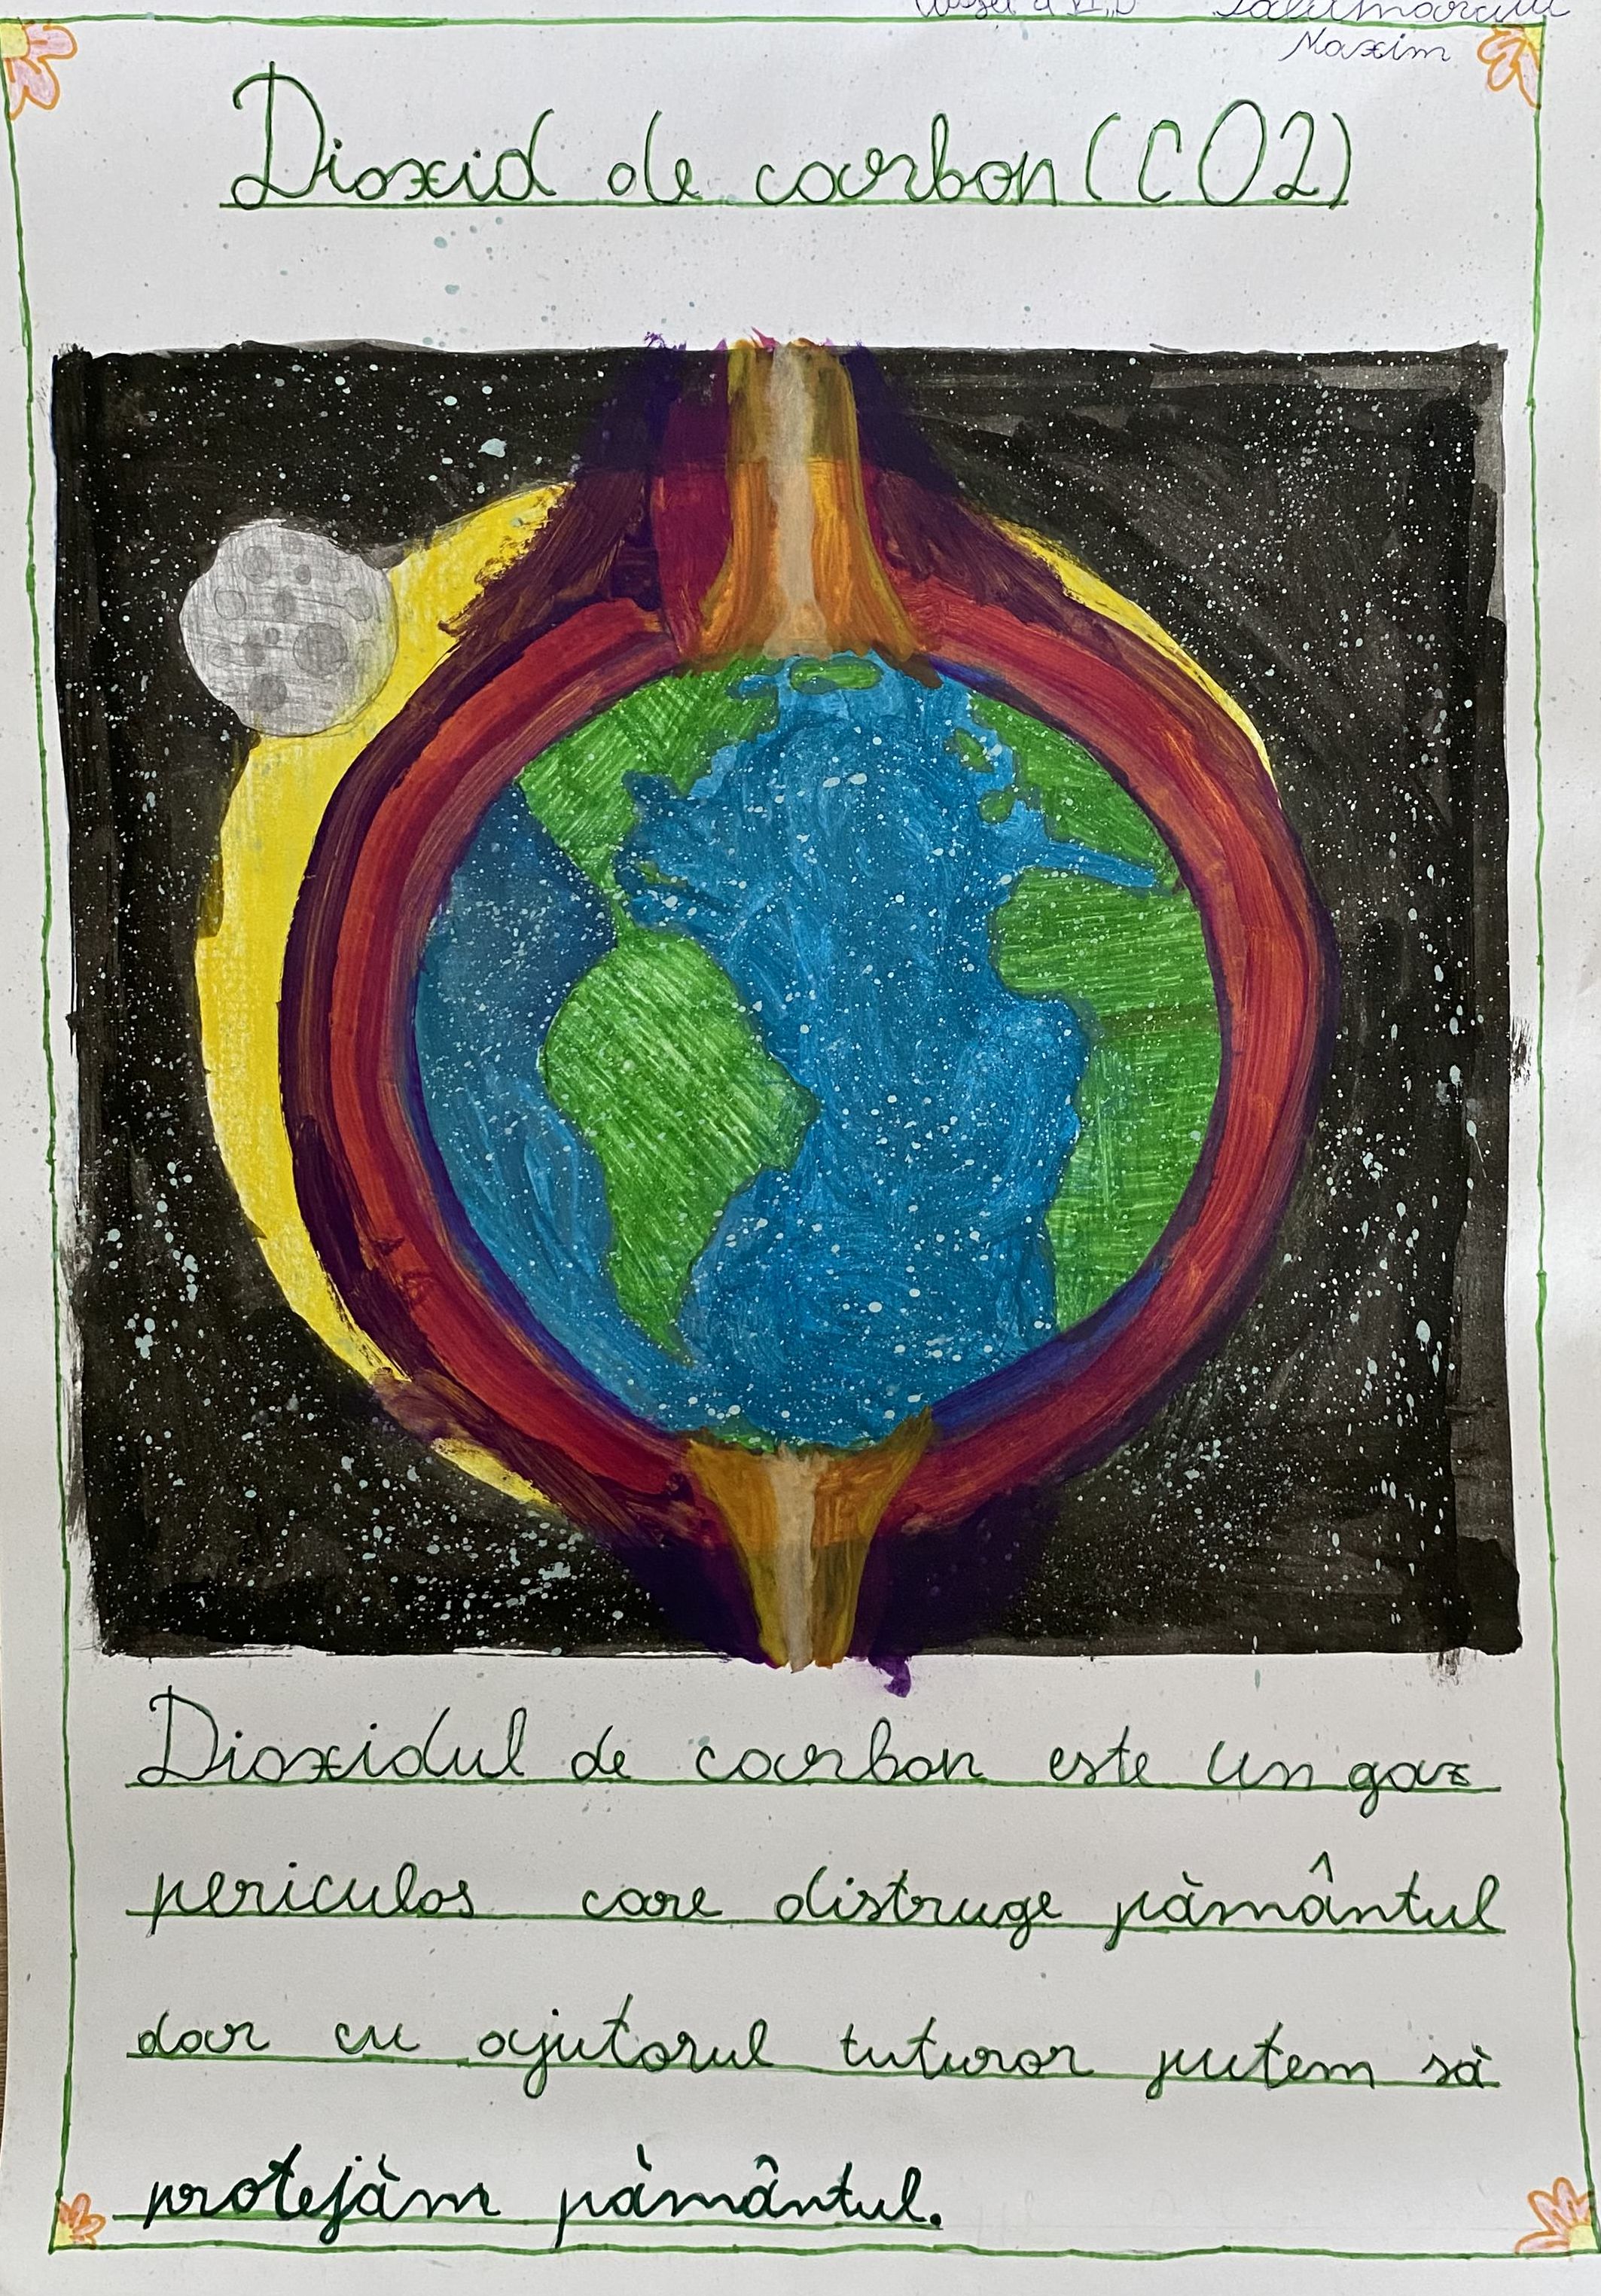 Maxim
Dioxid de carbon (CO2)
Dioxidul de carbon este un gaz
periculos care distruge pământul
dar cu ajutorul tuturor putem să
protejăm pământul.